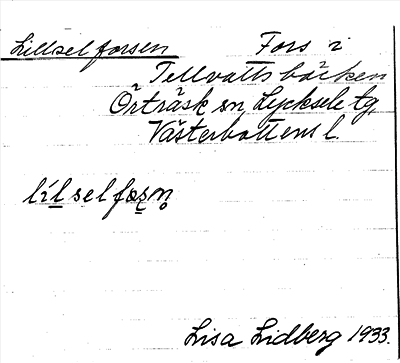 Lillselforsen Fors i
Tellvattsbäcken
Örträsk sn, Lycksele tg,
Västerbottens l.
lílselfors̥n̥
Lisa Lidberg 1933.